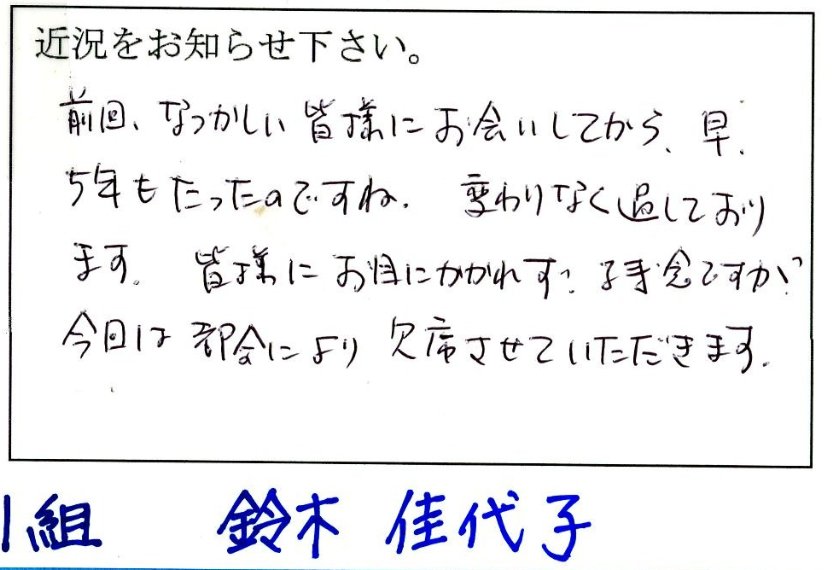 近況をお知らせ下さい。
前回、なつかしい皆様にお会いしてから、早、
5年もたったのですね。変わりなく過しており
ます。皆様にお目にかかれず、残念ですが
今回は都合により欠席させていただきます。
1組 鈴木 佳代子